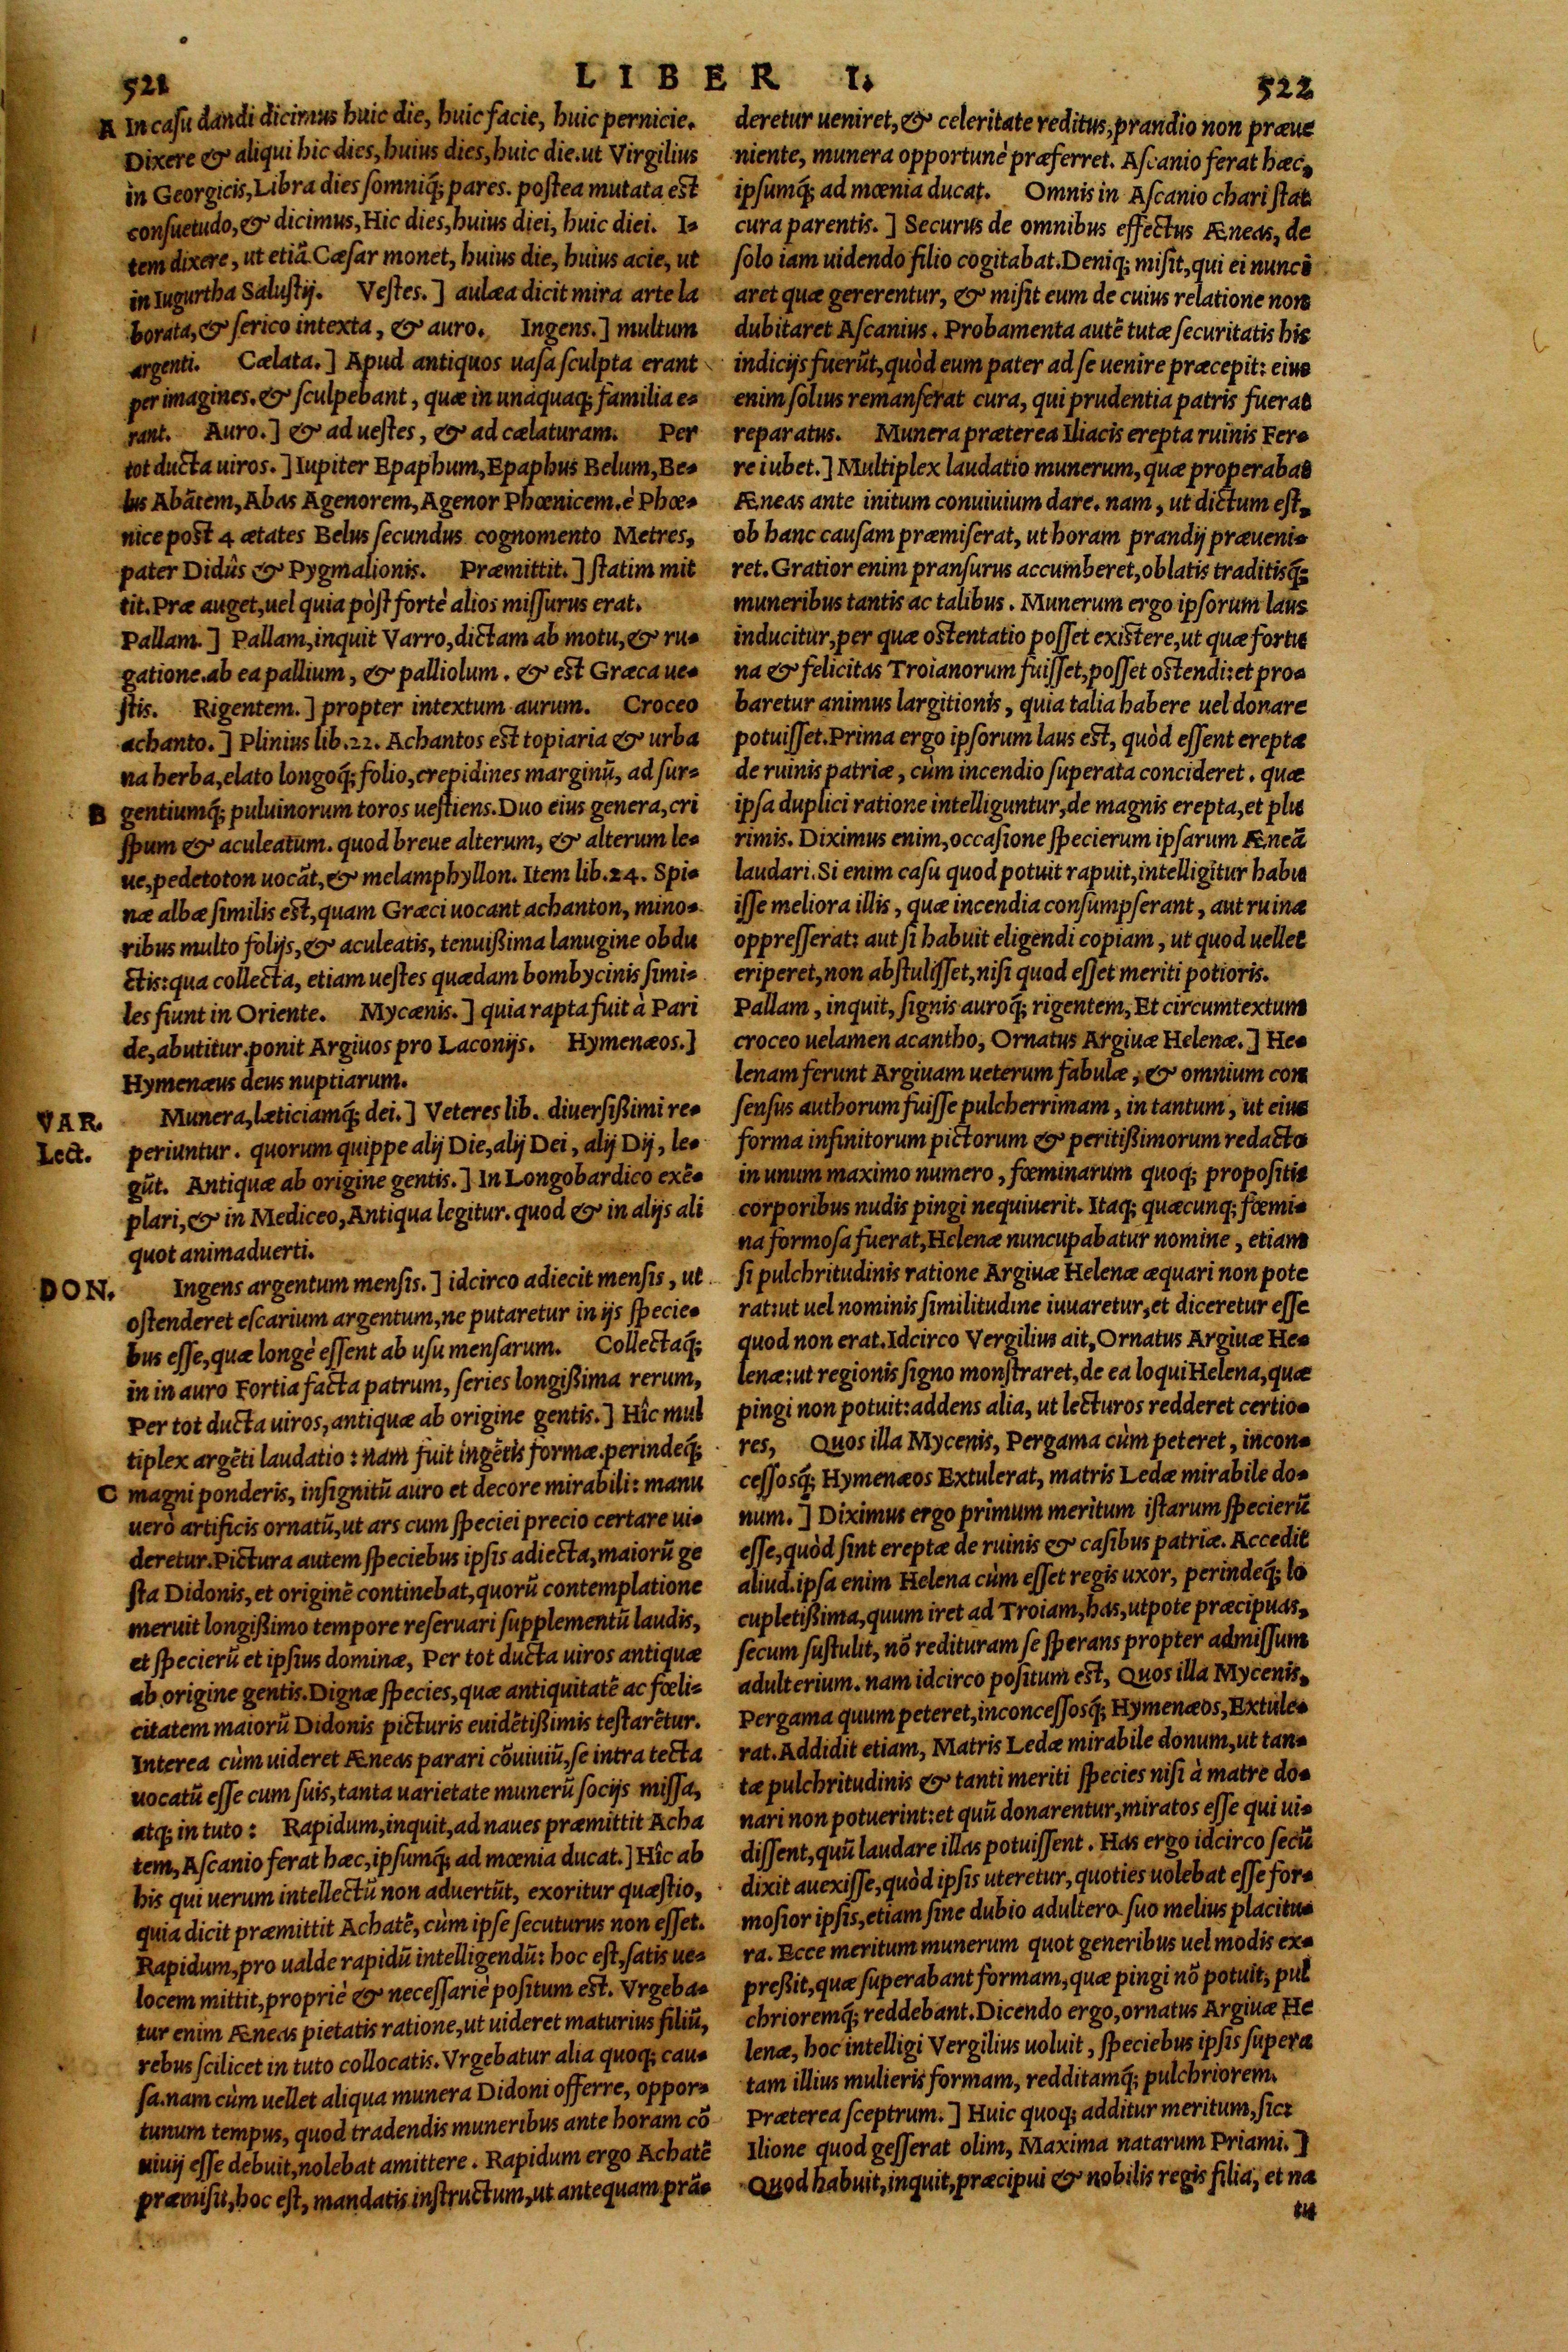 521
LIBER I.
522
A In casu dandi dicimus huic die, huic facie, huic pernicie.
Dixere & aliqui hic dies, huius dies, huic die. ut Virgilius
in Georgicis, Libra dies somniq́; pares. postea mutata est
consuetudo, & dicimus, Hic dies, huius diei, huic diei. I-
tem dixere, ut etiã Cæsar monet, huius die, huius acie, ut
in Iugurtha Salustij. Vestes.] aulæa dicit mira arte la
borata, & serico intexta, & auro. Ingens.] multum
argenti. Cælata.] Apud antiquos uasa sculpta erant
per imagines. & sculpebant, quæ in unaquaq; familia e-
rant. Auro.] & ad uestes, & ad cælaturam. Per
tot ducta uiros.] Iupiter Epaphum, Epaphus Belum, Be-
lus Abãtem, Abas Agenorem, Agenor Phœnicem. è Phœ-
nice post 4 ætates Belus secundus cognomento Metres,
pater Didûs & Pygmalionis. Præmittit.] statim mit
tit. Præ auget, uel quia pòst fortè alios missurus erat.
Pallam.] Pallam, inquit Varro, dictam ab motu, & ru-
gatione. ab ea pallium, & palliolum. & est Græca ue-
stis. Rigentem.] propter intextum aurum. Croceo
achanto.] Plinius lib. 22. Achantos est topiaria & urba
na herba, elato longoq́; folio, crepidines marginũ, ad sur-
B gentiumq́; puluinorum toros uestiens. Duo eius genera, cri
spum & aculeatum. quod breue alterum, & alterum le-
ue, pedetoton uocãt, & melamphyllon. Item lib. 24. Spi-
næ albæ similis est, quam Græci uocant achanton, mino-
ribus multo folijs, & aculeatis, tenuißima lanugine obdu
ctis: qua collecta, etiam uestes quædam bombycinis simi-
les fiunt in Oriente. Mycænis.] quia rapta fuit à Pari
de, abutitur. ponit Argiuos pro Laconijs. Hymenæos.]
Hymenæus deus nuptiarum.
VAR. Munera, læticiamq́; dei.] Veteres lib. diuersißimi re-
Lect. periuntur. quorum quippe alij Die, alij Dei, alij Dij, le-
gũt. Antiquæ ab origine gentis.] In Longobardico exẽ-
plari, & in Mediceo, Antiqua legitur. quod & in alijs ali
quot animaduerti.
DON. Ingens argentum mensis.] idcirco adiecit mensis, ut
ostenderet escarium argentum, ne putaretur in ijs specie-
bus esse, quæ longè essent ab usu mensarum. Collectaq́;
in in auro Fortia facta patrum, series longißima rerum,
Per tot ducta uiros, antiquæ ab origine gentis.] Hîc mul
tiplex argẽti laudatio: nam fuit ingẽtis formæ. perindeq́;
C magni ponderis, insignitũ auro et decore mirabili: manu
uerò artificis ornatũ, ut ars cum speciei precio certare ui-
deretur. Pictura autem speciebus ipsis adiecta, maiorũ ge
sta Didonis, et originẽ continebat, quorũ contemplatione
meruit longißimo tempore reseruari supplementũ laudis,
et specierũ et ipsius dominæ, Per tot ducta uiros antiquæ
ab origine gentis. Dignæ species, quæ antiquitatẽ ac fœli-
citatem maiorũ Didonis picturis euidẽtißimis testarẽtur.
Interea cùm uideret Æneas parari cõuiuiũ, se intra tecta
uocatũ esse cum suis, tanta uarietate munerũ socijs missa,
atq; in tuto: Rapidum, inquit, ad naues præmittit Acha
tem, Ascanio ferat hæc, ipsumq́; ad mœnia ducat.] Hîc ab
his qui uerum intellectũ non aduertũt, exoritur quæstio,
quia dicit præmittit Achatẽ, cùm ipse secuturus non esset.
Rapidum, pro ualde rapidũ intelligendũ: hoc est, satis ue-
locem mittit, propriè & necessariè positum est. Vrgeba-
tur enim Æneas pietatis ratione, ut uideret maturius filiũ,
rebus scilicet in tuto collocatis. Vrgebatur alia quoq; cau-
sa. nam cùm uellet aliqua munera Didoni offerre, oppor-
tunum tempus, quod tradendis muneribus ante horam cõ
uiuij esse debuit, nolebat amittere. Rapidum ergo Achatẽ
præmisit, hoc est, mandatis instructum, ut antequam prã-
deretur ueniret, & celeritate reditus, prandio non præue
niente, munera opportunè præferret. Ascanio ferat hæc,
ipsumq́; ad mœnia ducat. Omnis in Ascanio chari stat
cura parentis.] Securus de omnibus effectus Æneas, de
solo iam uidendo filio cogitabat. Deniq; misit, qui ei nunci
aret quæ gererentur, & misit eum de cuius relatione non
dubitaret Ascanius. Probamenta autẽ tutæ securitatis his
indicijs fuerũt, quòd eum pater ad se uenire præcepit: eius
enim solius remanserat cura, qui prudentia patris fuerat
reparatus. Munera præterea Iliacis erepta ruinis Fer-
re iubet.] Multiplex laudatio munerum, quæ properabat
Æneas ante initum conuiuium dare. nam, ut dictum est,
ob hanc causam præmiserat, ut horam prandij præueni-
ret. Gratior enim pransurus accumberet, oblatis traditisq́;
muneribus tantis ac talibus. Munerum ergo ipsorum laus
inducitur, per quæ ostentatio posset existere, ut quæ fortu
na & felicitas Troianorum fuisset, posset ostendi: et pro-
baretur animus largitionis, quia talia habere uel donare
potuisset. Prima ergo ipsorum laus est, quòd essent erepta
de ruinis patriæ, cùm incendio superata concideret. quæ
ipsa duplici ratione intelliguntur, de magnis erepta, et plu
rimis. Diximus enim, occasione specierum ipsarum Æneã
laudari. Si enim casu quod potuit rapuit, intelligitur habu
isse meliora illis, quæ incendia consumpserant, aut ruina
oppresserat: aut si habuit eligendi copiam, ut quod uellet
eriperet, non abstulisset, nisi quod esset meriti potioris.
Pallam, inquit, signis auroq́; rigentem, Et circumtextum
croceo uelamen acantho, Ornatus Argiuæ Helenæ.] He-
lenam ferunt Argiuam ueterum fabulæ, & omnium con
sensus authorum fuisse pulcherrimam, in tantum, ut eius
forma infinitorum pictorum & peritißimorum redacto
in unum maximo numero, fœminarum quoq; propositis
corporibus nudis pingi nequiuerit. Itaq; quæcunq; fœmi-
na formosa fuerat, Helenæ nuncupabatur nomine, etiam
si pulchritudinis ratione Argiuæ Helenæ æquari non pote
rat: ut uel nominis similitudine iuuaretur, et diceretur esse
quod non erat. Idcirco Vergilius ait, Ornatus Argiuæ He-
lenæ: ut regionis signo monstraret, de ea loqui Helena, quæ
pingi non potuit: addens alia, ut lecturos redderet certio-
res, Quos illa Mycenis, Pergama cùm peteret, incon-
cessosq́; Hymenæos Extulerat, matris Ledæ mirabile do-
num.] Diximus ergo primum meritum istarum specierũ
esse, quòd sint ereptæ de ruinis & casibus patriæ. Accedit
aliud. ipsa enim Helena cùm esset regis uxor, perindeq́; lo
cupletißima, quum iret ad Troiam, has, utpote præcipuas,
secum sustulit, nõ redituram se sperans propter admissum
adulterium. nam idcirco positum est, Quos illa Mycenis,
Pergama quum peteret, inconcessosq́; Hymenæos, Extule-
rat. Addidit etiam, Matris Ledæ mirabile donum, ut tan-
tæ pulchritudinis & tanti meriti species nisi à matre do-
nari non potuerint: et quũ donarentur, miratos esse qui ui-
dissent, quũ laudare illas potuissent. Has ergo idcirco secũ
dixit auexisse, quòd ipsis uteretur, quoties uolebat esse for-
mosior ipsis, etiam sine dubio adultero suo melius placitu-
ra. Ecce meritum munerum quot generibus uel modis ex-
preßit, quæ superabant formam, quæ pingi nõ potuit, pul
chrioremq́; reddebant. Dicendo ergo, ornatus Argiuæ He
lenæ, hoc intelligi Vergilius uoluit, speciebus ipsis supera
tam illius mulieris formam, redditamq́; pulchriorem.
Præterea sceptrum.] Huic quoq; additur meritum, sic:
Ilione quod gesserat olim, Maxima natarum Priami.]
Quod habuit, inquit, præcipui & nobilis regis filia, et na
tu